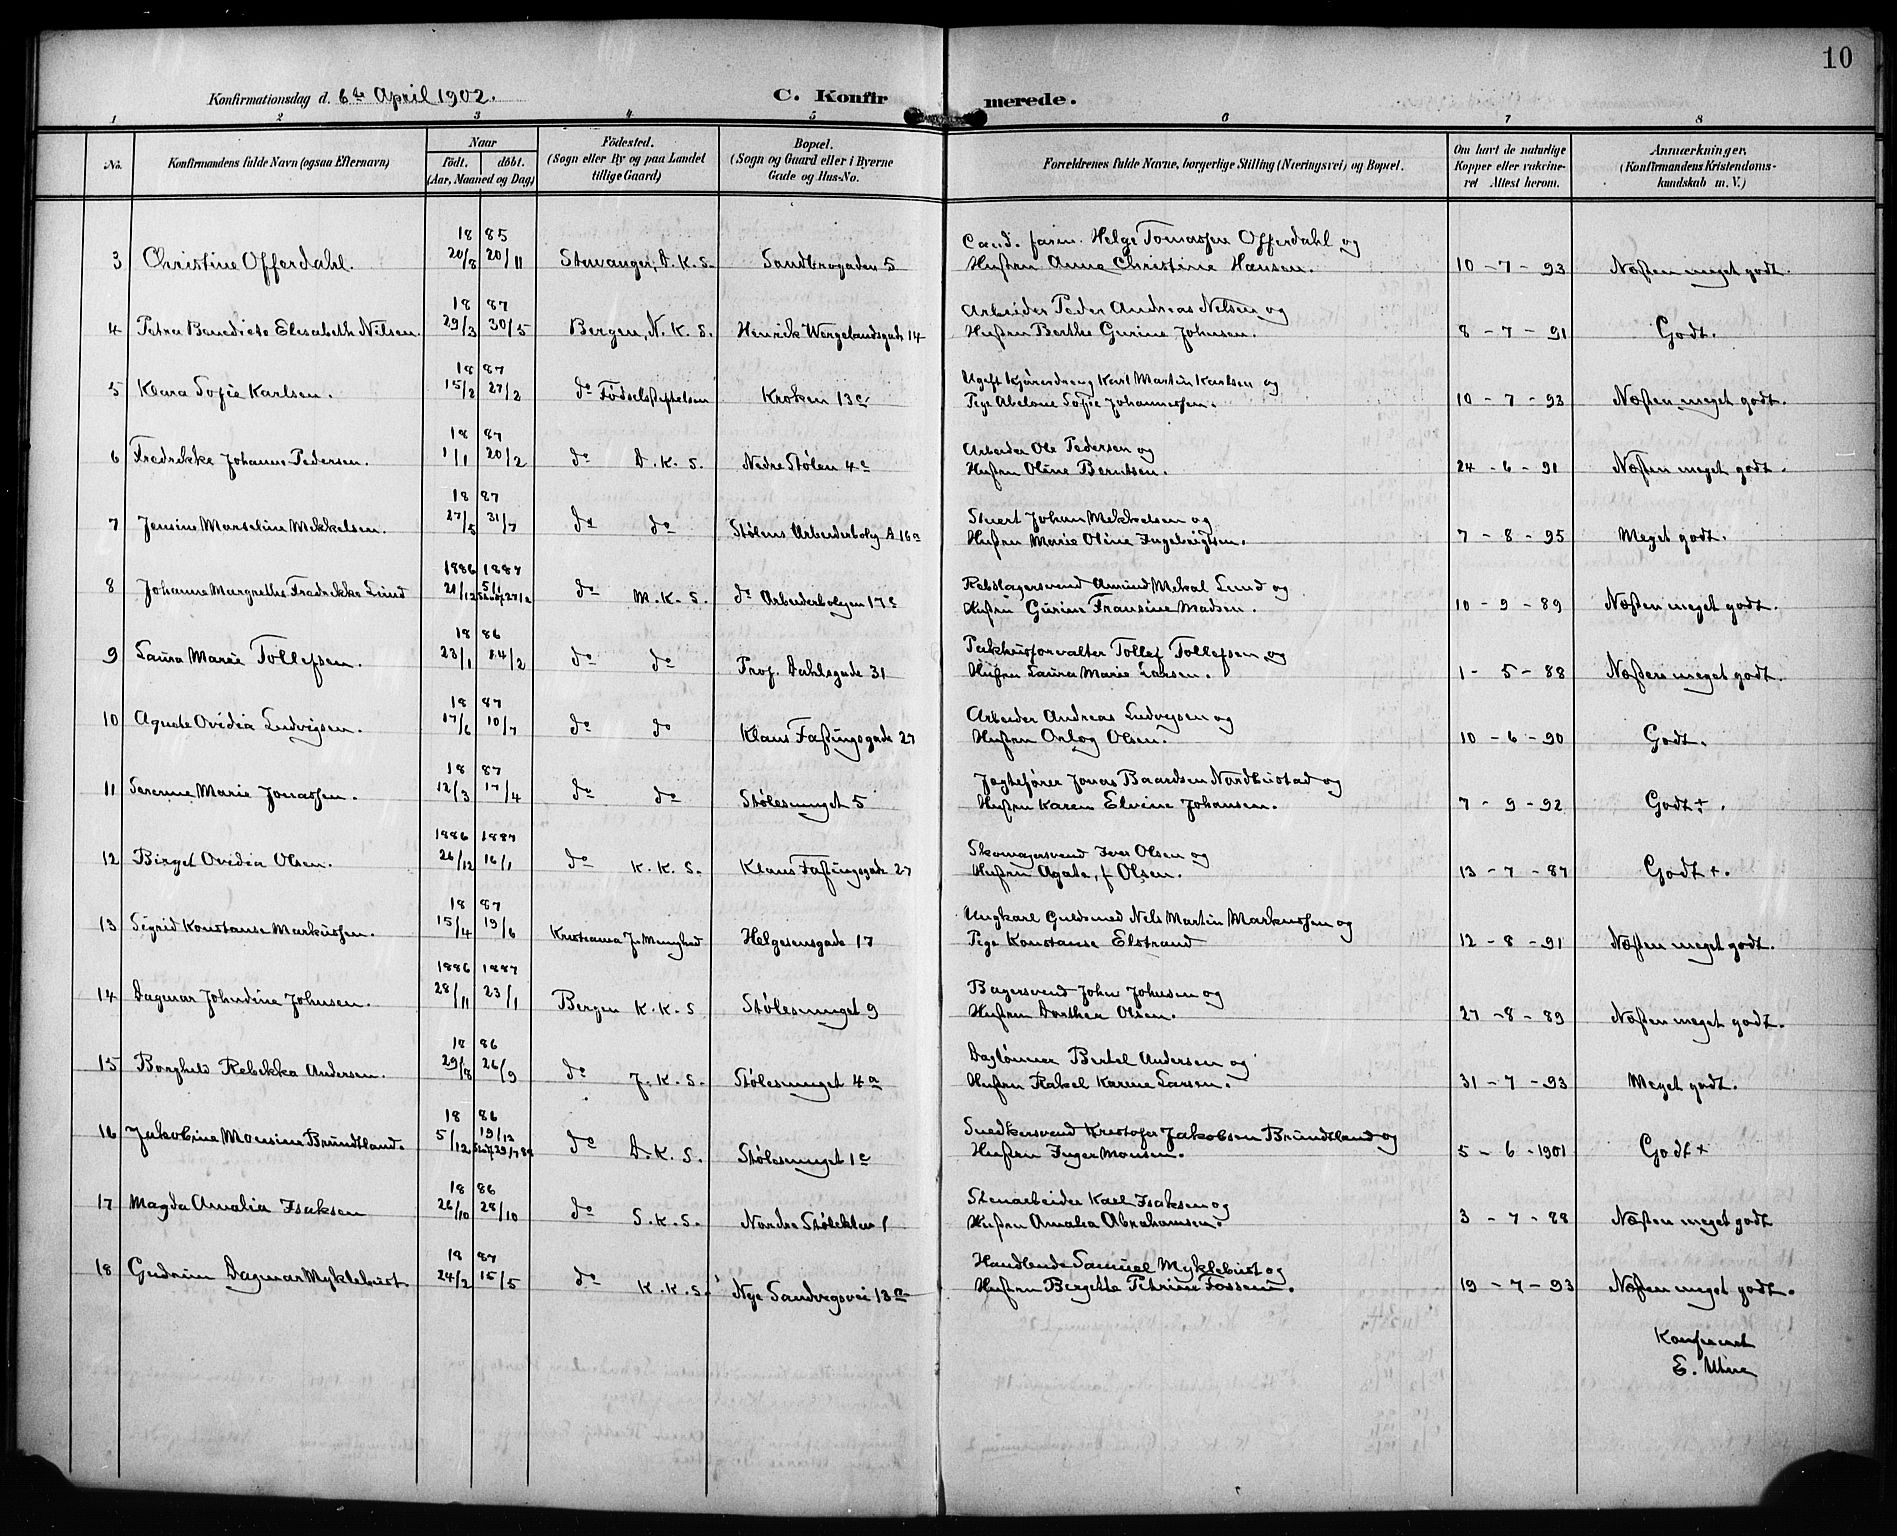 10
Konfirmationsdag d. 6te April 1902.
C. Konfirmerede.
1 2 3 4 5 6 7 8
No.
Konfirmandens fulde Navn (ogsaa Efternavn)
Naar
Födt. döbt.
(Aar, Maaned og Dag)
Födested.
(Sogn eller By og paa Landet
tillige Gaard)
Bopæl.
(Sogn og Gaard eller i Byerne
Gade og Hus-No.
Forældrenes fulde Navne, borgerlige Stilling (Næringsvei) og Bopæl.
Om havt de naturlige
Kopper eller vakcine-
ret Attest herom.
Anmærkninger,
(Konfirmandens Kristendoms-
kundskab m. V.)
18 85
Cand. farm. Helge Tomassen Offerdahl og
3 Christine Offerdahl. 20/8 20/11 Stavanger, D. K. S. Sandbrogaden 5
Hustru Anna Christine Hansen. 10-7-93 Næsten meget godt.
18 87
Arbeider Peder Andreas Nilsen og
4 Petra Benedicte Elisabeth Nilsen. 29/3 30/5 Bergen, N. K. S. Henrik Wergelandsgade 14
Hustru Berthe Gurine Johnsen. 8-7-91 Godt.
18 87
Ugift Kjøredreng Karl Martin Karlsen og
5 Klara Sofie Karlsen. 15/2 27/2 do Fødselsstiftelsen Kroken 13c
Pige Abelone Sofie Johannessen. 10-7-93 Næsten meget godt.
18 87
Arbeider Ole Pedersen og
6 Fredrikke Johanne Pedersen. 1/1 20/2 do D. K. S. Nedre Stølen 4c
Hustru Oline Berntsen. 24-6-91 Næsten meget godt.
18 87
Stuert Johan Mikkelsen og
7 Jensine Marseline Mikkelsen. 27/5 31/7 do do Stølens Arbeiderbolig A 16a
Hustru Marie Oline Ingebrigtsen. 7-8-95 Meget godt.
1886 1887
Rebslagersvend Amund Mekal Lund og
8 Johanne Margrethe Fredrikke Lund 21/12 5/1 27/2 do M. K. S. do Arbeiderboligen 17c
Hustru Gurine Fransine Madsen. 10-9-89 Næsten meget godt.
18 86
Pakhusforvalter Tollef Tollefsen og
9 Laura Marie Tollefsen. 23/1 /2 do do Prof. Dahlsgade 31
Hustru Laura Marie Larsen. 1-5-88 Næsten meget godt.
18 87
Arbeider Andreas Ludvigsen og
10 Agnete Ovidia Ludvigsen. 17/6 10/7 do do Klaus Fastingsgade 27
Hustru Orlog Olsen. 10-6-90 Godt.
18 87
Jægtefører Jonas Baardsen Nordhustad og
11 Serenne Marie Jonassen. 12/3 17/4 do do Stølesmuget 5
Hustru Karen Elvine Johansen. 7-9-92 Godt+.
1886 1887
Skomagersvend Iver Olsen og
12 Birget Ovidia Olsen. 26/12 16/1 do K. K. S. Klaus Fastingsgade 27
Hustru Agate, f Olsen. 13-7-87 Godt+.
18 87
Ungkarl Guldsmed Nils Martin Markussen og
13 Sigrid Konstanse Markussen. 15/4 19/6 Kristiania J. Menighed Helgesensgade 17
Pige Konstanse Elstrand 12-8-91 Næsten meget godt.
1886 1887
Bagersvend John Johnsen og
14 Dagmar Johndine Johnsen. 28/11 23/1 Bergen K. K. S Stølesmuget 9
Hustru Dorthea Olsen. 27-8-89 Næsten meget godt.
18 86
Daglønner Bertel Andersen og
15 Borghild Rebekka Andersen. 29/8 26/9 do J. K. S. Stølesmuget 4a
Hustru Rakel Karine Larsen. 31-7-93 Meget godt.
18 86
Snedkersvend Kristofer Jakobsen Brundtland og
16 Jakobine Monsine Brundtland. 5/12 19/12 29/7 87 do D. K. S. Stølesmuget 1c
Hustru Inger Monsen. 5-6-1901 Godt+
18 86
Stenarbeider Karl Isaksen og
17 Magda Amalia Isaksen 26/10 28/10 do S. K. S. Nordre 1
Hustru Amalia Abrahamsen. 3-7-88 Næsten meget godt
18 87
Handlende Samuel Myklebust og
18 Gudrun Dagmar Myklebust. 24/2 15/5 do K. K. S. Nye Sandvigsvei 13a
Hustru Bergitte Petrine Fossen. 19-7-93 Næsten meget godt.
E.